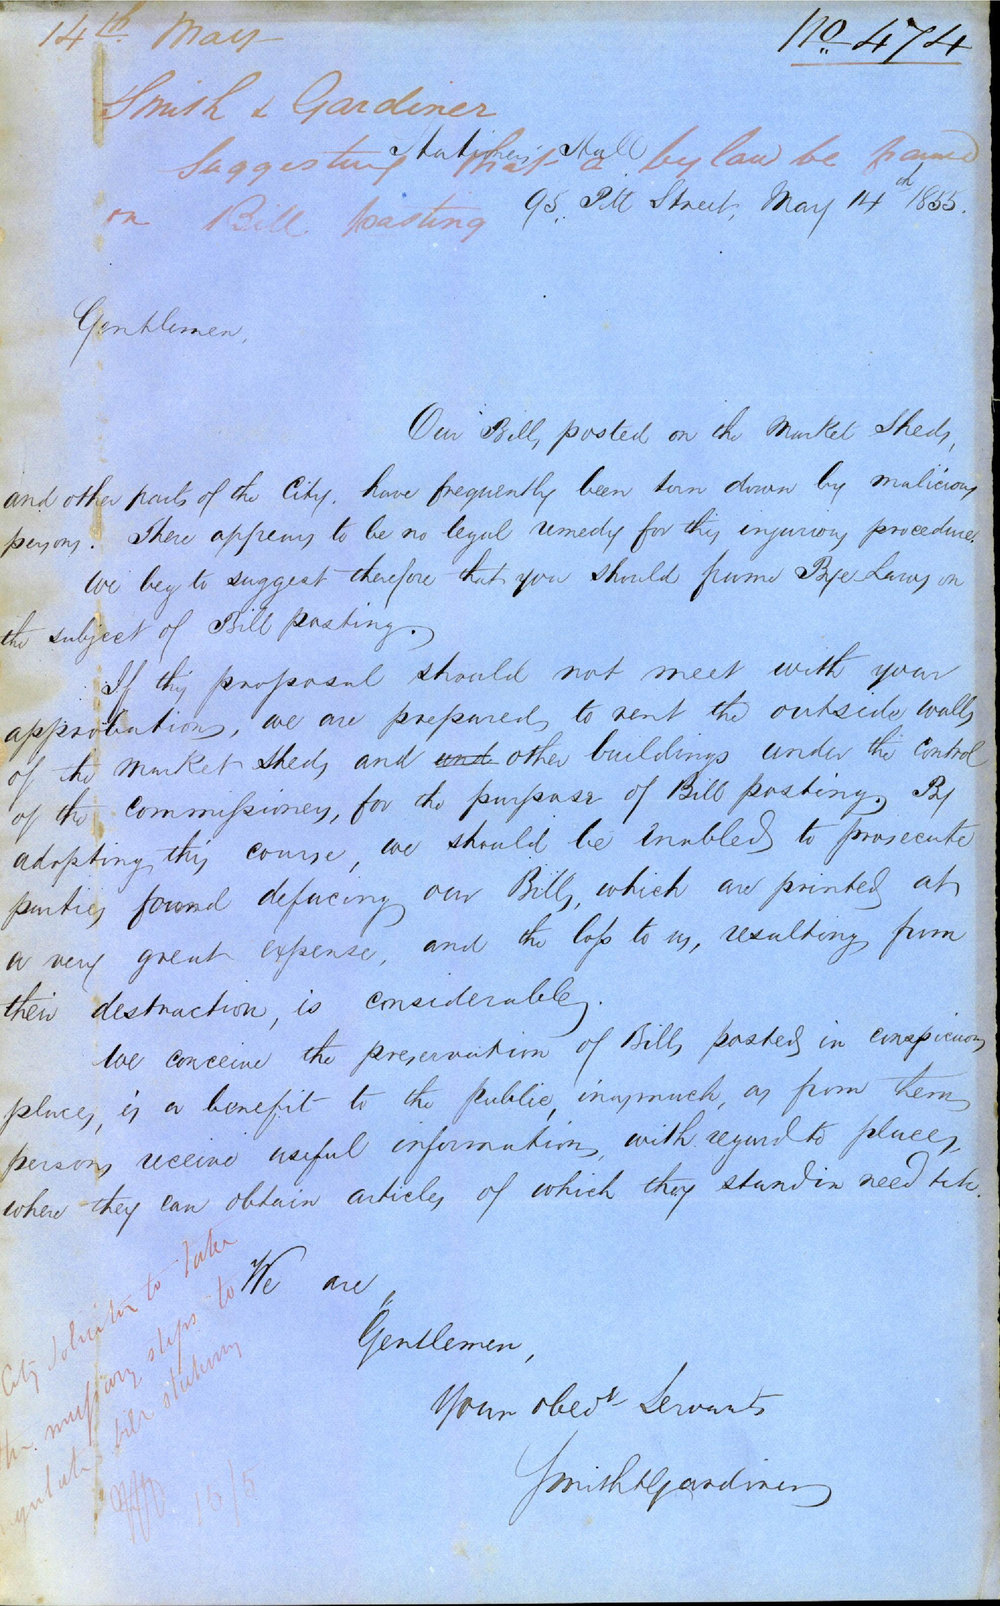 14th May
No 474
Smith & Gardiner
Suggesting that a by law be passed
on Bill posting
Stationers Hall
95. Pitt Street, May 14th 1855.
Gentlemen,
Our Bills, posted on the Market Sheds,
and other parts of the City. have frequently been torn down by malicious
persons. There appears to be no legal remedy for this injurious procedure.
We beg to suggest therefore that you should frame Bye Laws on
the subject of Bill posting.
If this proposal should not meet with your
approbation, we are prepared, to rent the outside walls
of the Market Sheds and and other buildings under the control
of the Commissioners, for the purpose of Bill posting. By
adopting this course, we should be enabled to prosecute
parties found defacing our Bills, which are printed at
a very great expense, and the loss to us, resulting from
their destruction, is considerable.
We conceive the preservation of Bills posted in conspicuous
places, is a benefit to the public, inasmuch, as from them
persons receive useful information, with regard to places,
where they can obtain articles of which they stand in need &c &c.
We are,
Gentlemen,
Your obedt Servants
Smith & Gardiner
City Solicitor to take
the necessary steps to
regulate bill sticking
15/5